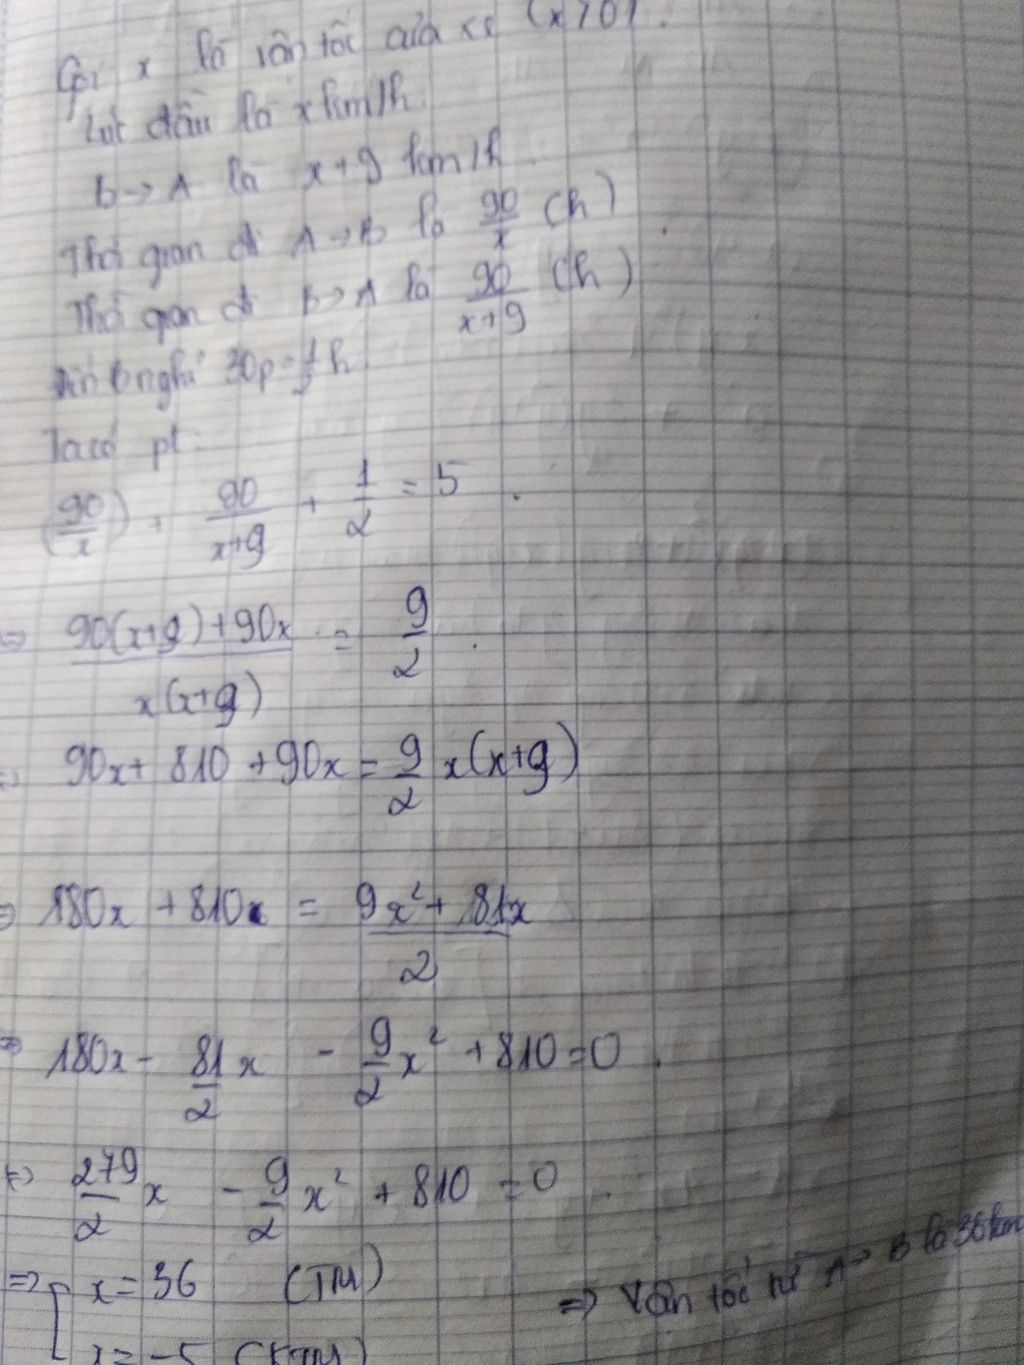 Gọi x là vận tốc của xe (x>0).
Lúc đầu là x km/h
B→A là x+9 km/h
Thời gian đi A→B là 90/x (h)
Thời gian đi B→A là 90/(x+9) (h)
nghỉ 30p=1/2 h.
Ta có pt:
(90/x) + 90/(x+9) + 1/2 = 5
⇔ (90(x+9)+90x)/(x(x+9)) = 9/2
⇔ 90x+ 810 +90x = 9/2 x(x+9)
⇔ 180x + 810 = (9x²+ 81x)/2
⇔ 180x - 81/2 x - 9/2 x² + 810 = 0
⇔ 279/2 x - 9/2 x² + 810 = 0
⇒ [ x = 36 (TM) ⇒ Vận tốc từ A→B là 36km
x = -5 (KTM)